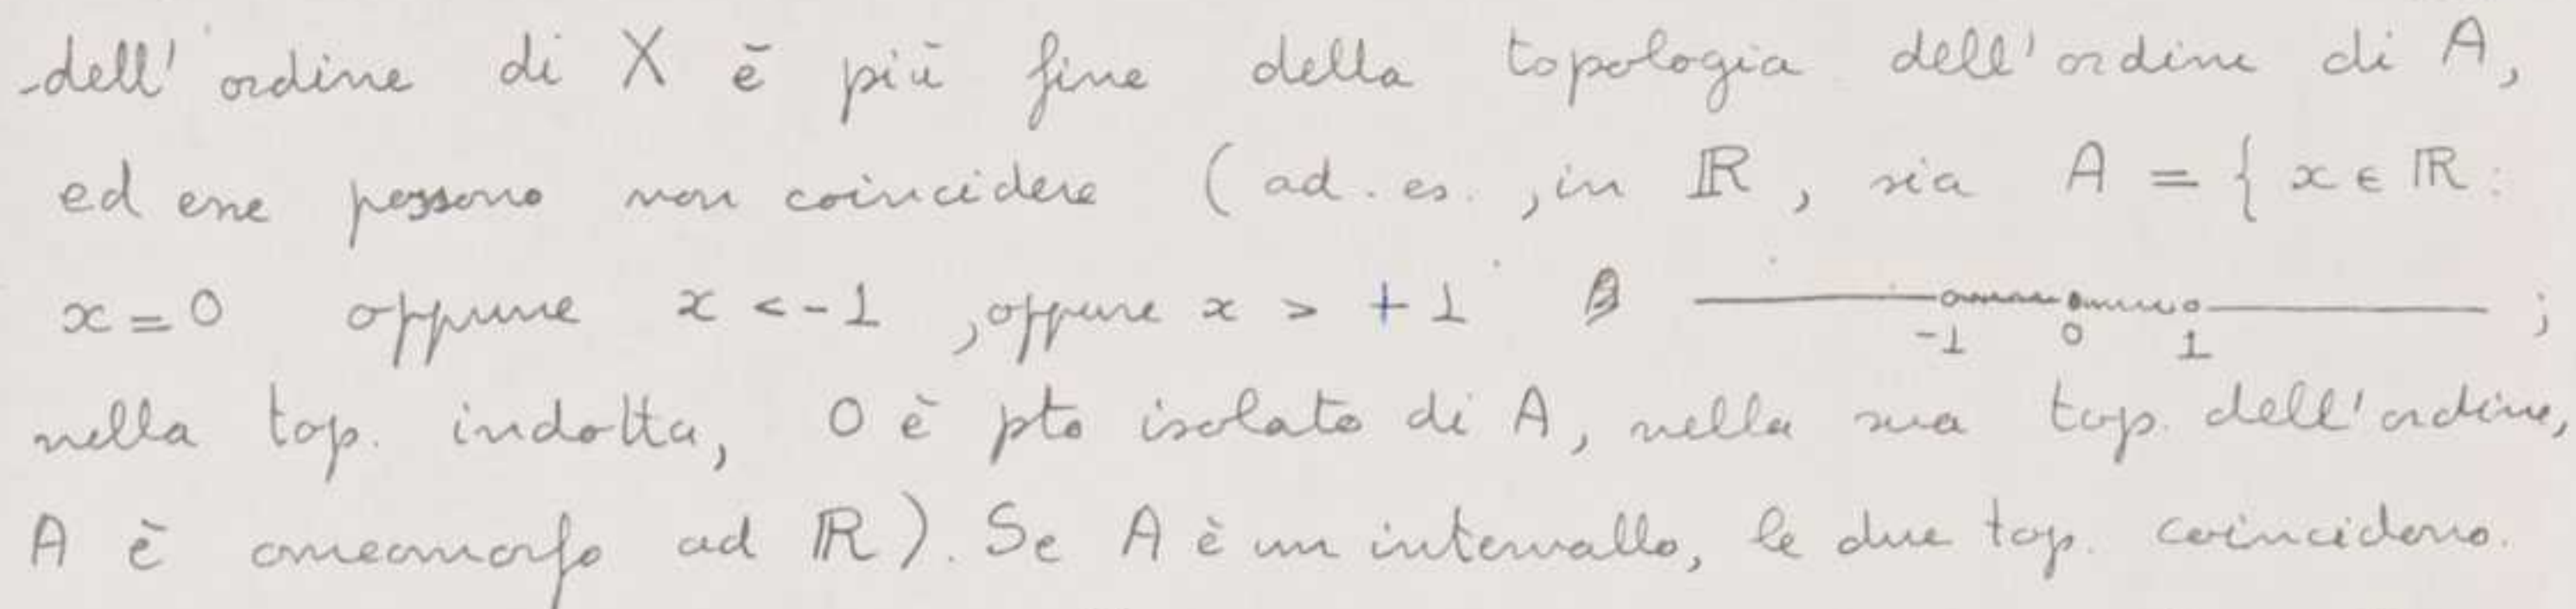 dell' ordine di X è più fine della topologia dell' ordine di A,
ed esse possono non coincidere (ad. es. , in ℝ, sia A = { x ∈ ℝ :
x = 0 oppure x < -1 , oppure x > +1 } -1 0 1 ;
nella top. indotta, 0 è pto isolato di A, nella sua top. dell' ordine,
A è omeomorfo ad ℝ). Se A è un intervallo, le due top. coincidono.